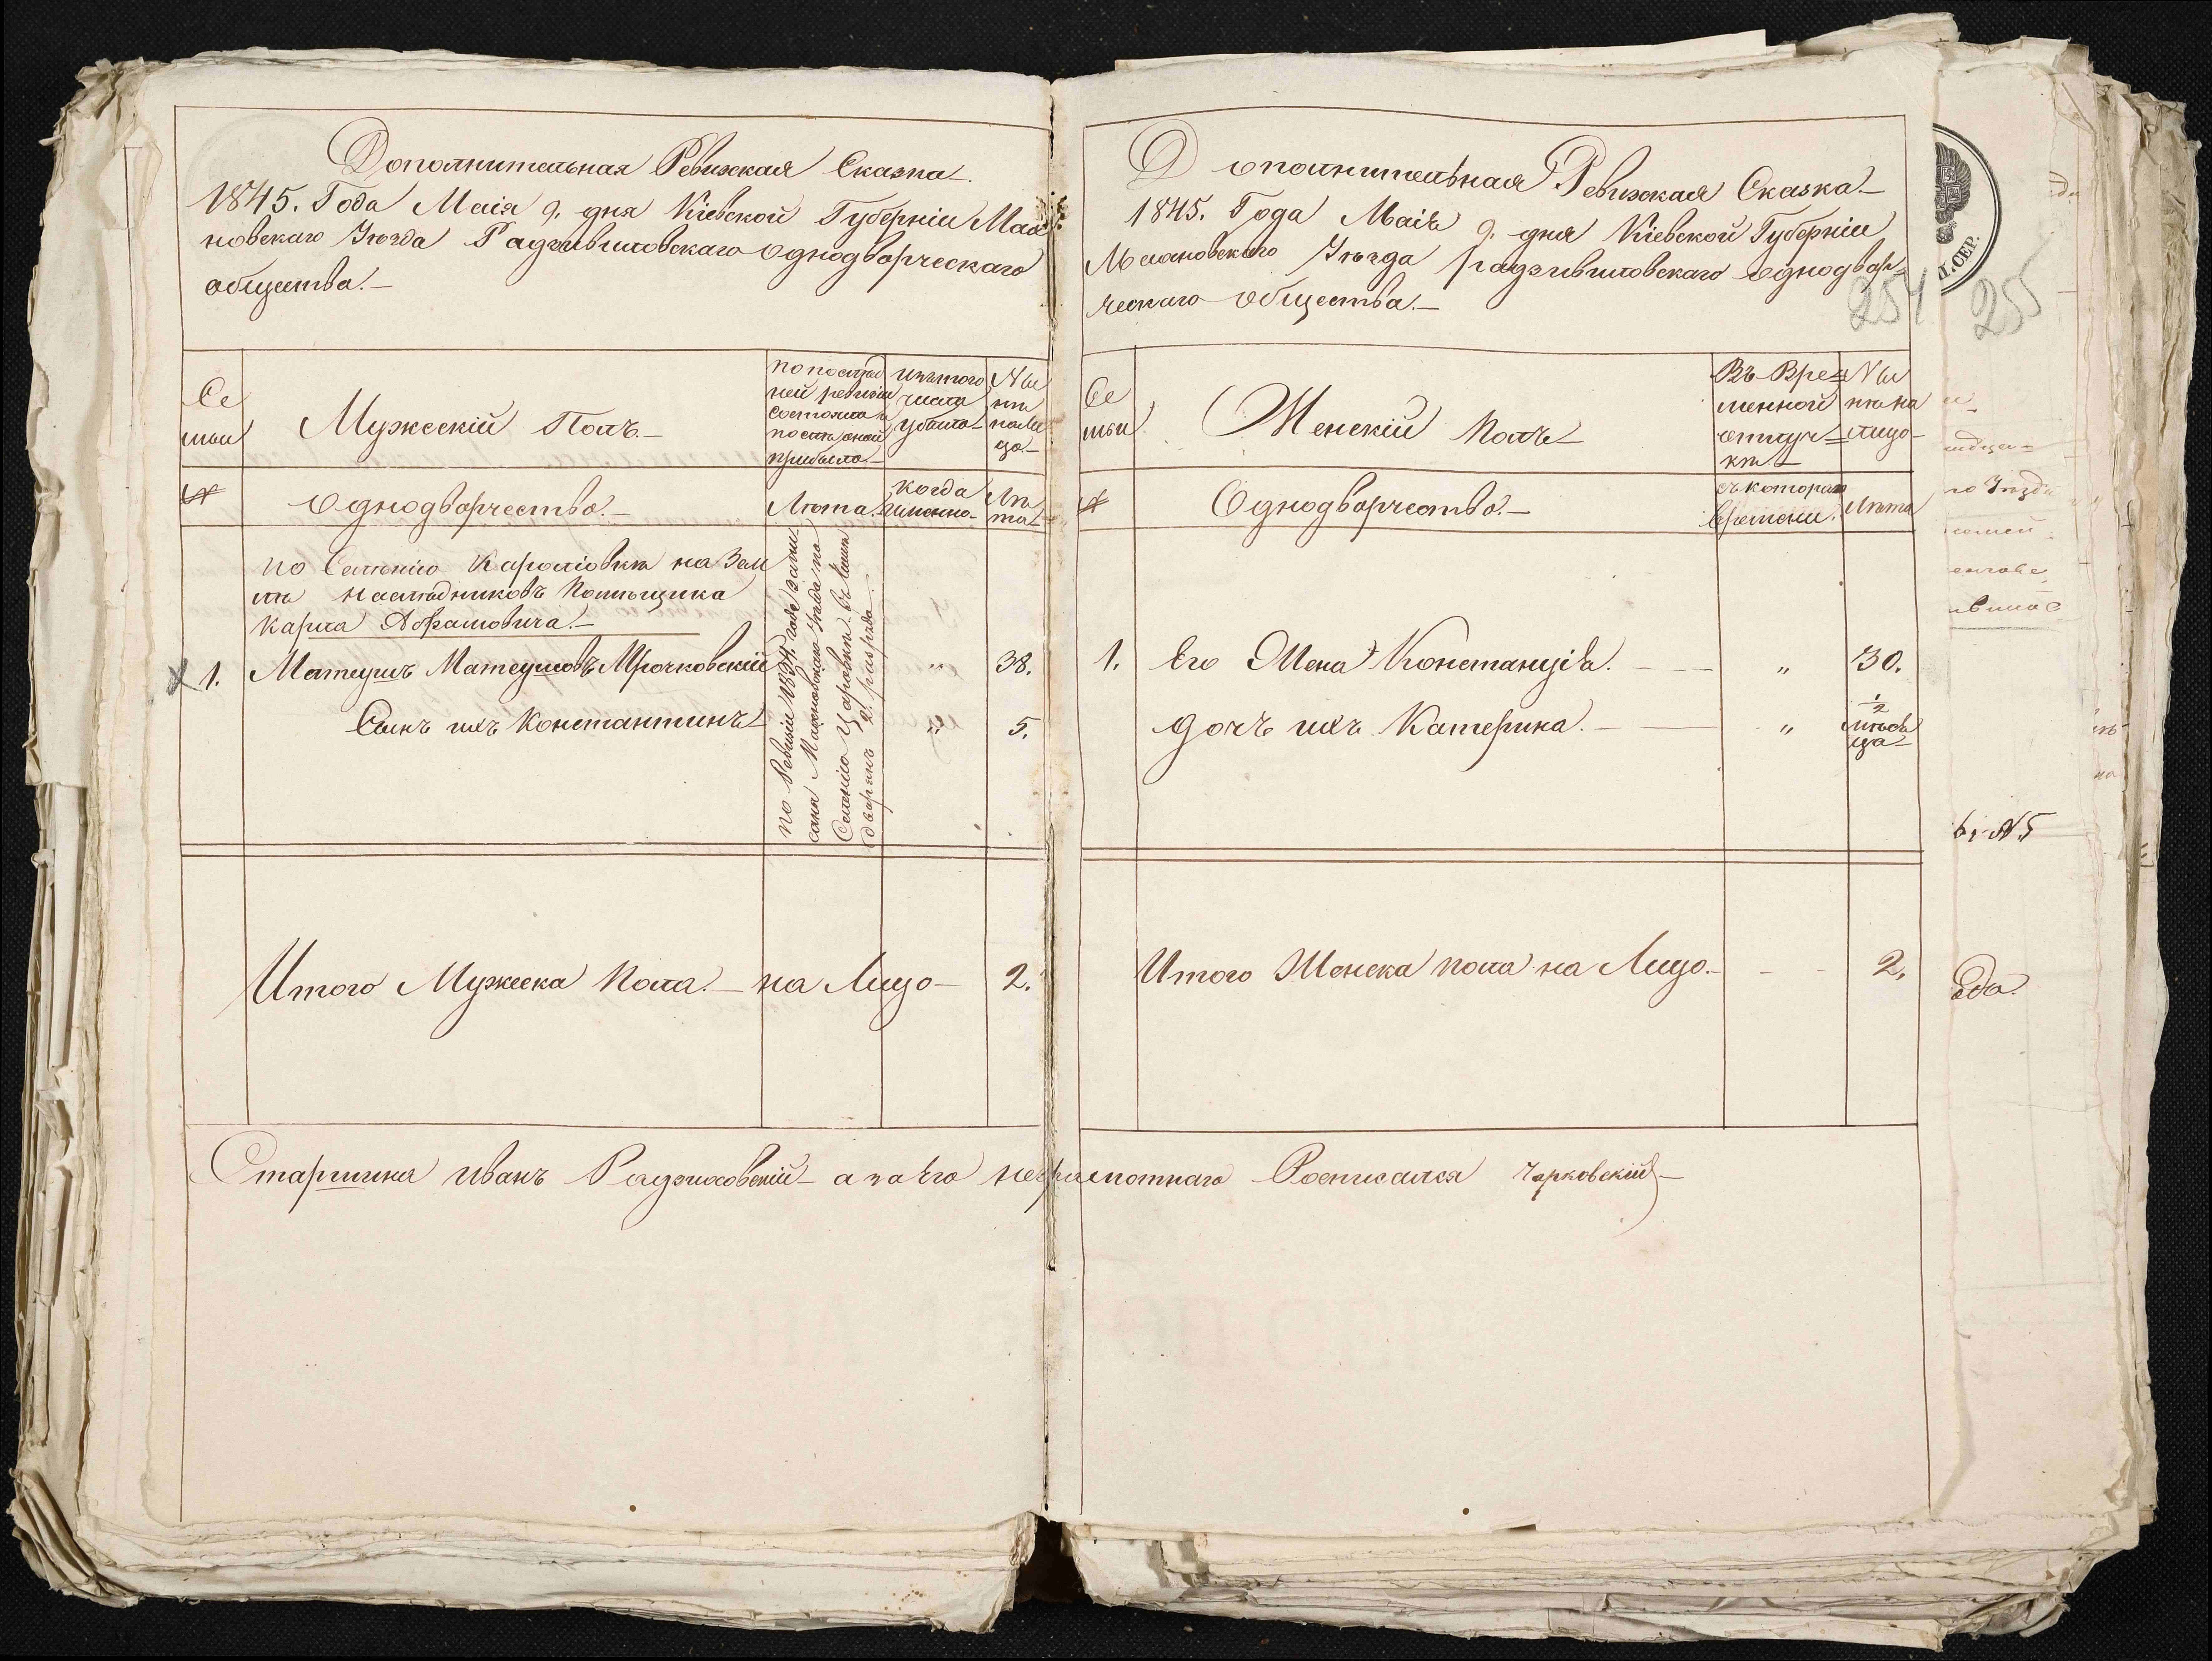 Дополнительная Ревизская Сказка.
1845. Года Маія 9. дня Кіевской Губерніи Мах
новскаго Уѣзда Радзивиловскаго Однодворческаго
общества.—
Се
мьи
Мужескій Полъ.—
по послѣд
ней ревизіи
состояло и
послѣ оной
прибыло—
изъ того
числа
убыло—
Ны
нѣ
на ли
цо—
№
Однодворчество.—
Лѣта.
когда
именно—
Лѣ
та
по Селенію Каролiовкѣ на Зем
лѣ наслѣдниковъ Помѣщика
Карла Абрамовича.—
1. Матеушъ Матеушовъ Мрочковскій „ 38.
Сынъ ихъ Константинъ „ 5.
по Ревизіи 1834. года запи
санъ Махновскаго Уѣзда по
Селенію
дворянъ 2. разряда.
Итого Мужеска Пола.— на Лицо— 2.
Дополнительная Ревизская Сказка—
1845. Года Маіа 9. дня Кіевской Губерніи
Махновского Уѣзда радзивиловскаго однодвор=
ческаго общества.—
254
Се
мьи
Женскій Полъ
Въ Вре=
менной
отлуч=
кѣ.—
Ны
нѣ на
лицо—
№
Однодворчество.—
съ котораго
времени.
Лѣта
1. Его Жена Констанція. — „ 30.
дочъ ихъ Катерина. — „ 1/2
мѣся
ца—
Итого Женска пола на Лицо.— 2.
Старшина Иванъ а за Его неграмотнаго Росписался Чарковскій—
П.СЕР.
255
№ 5